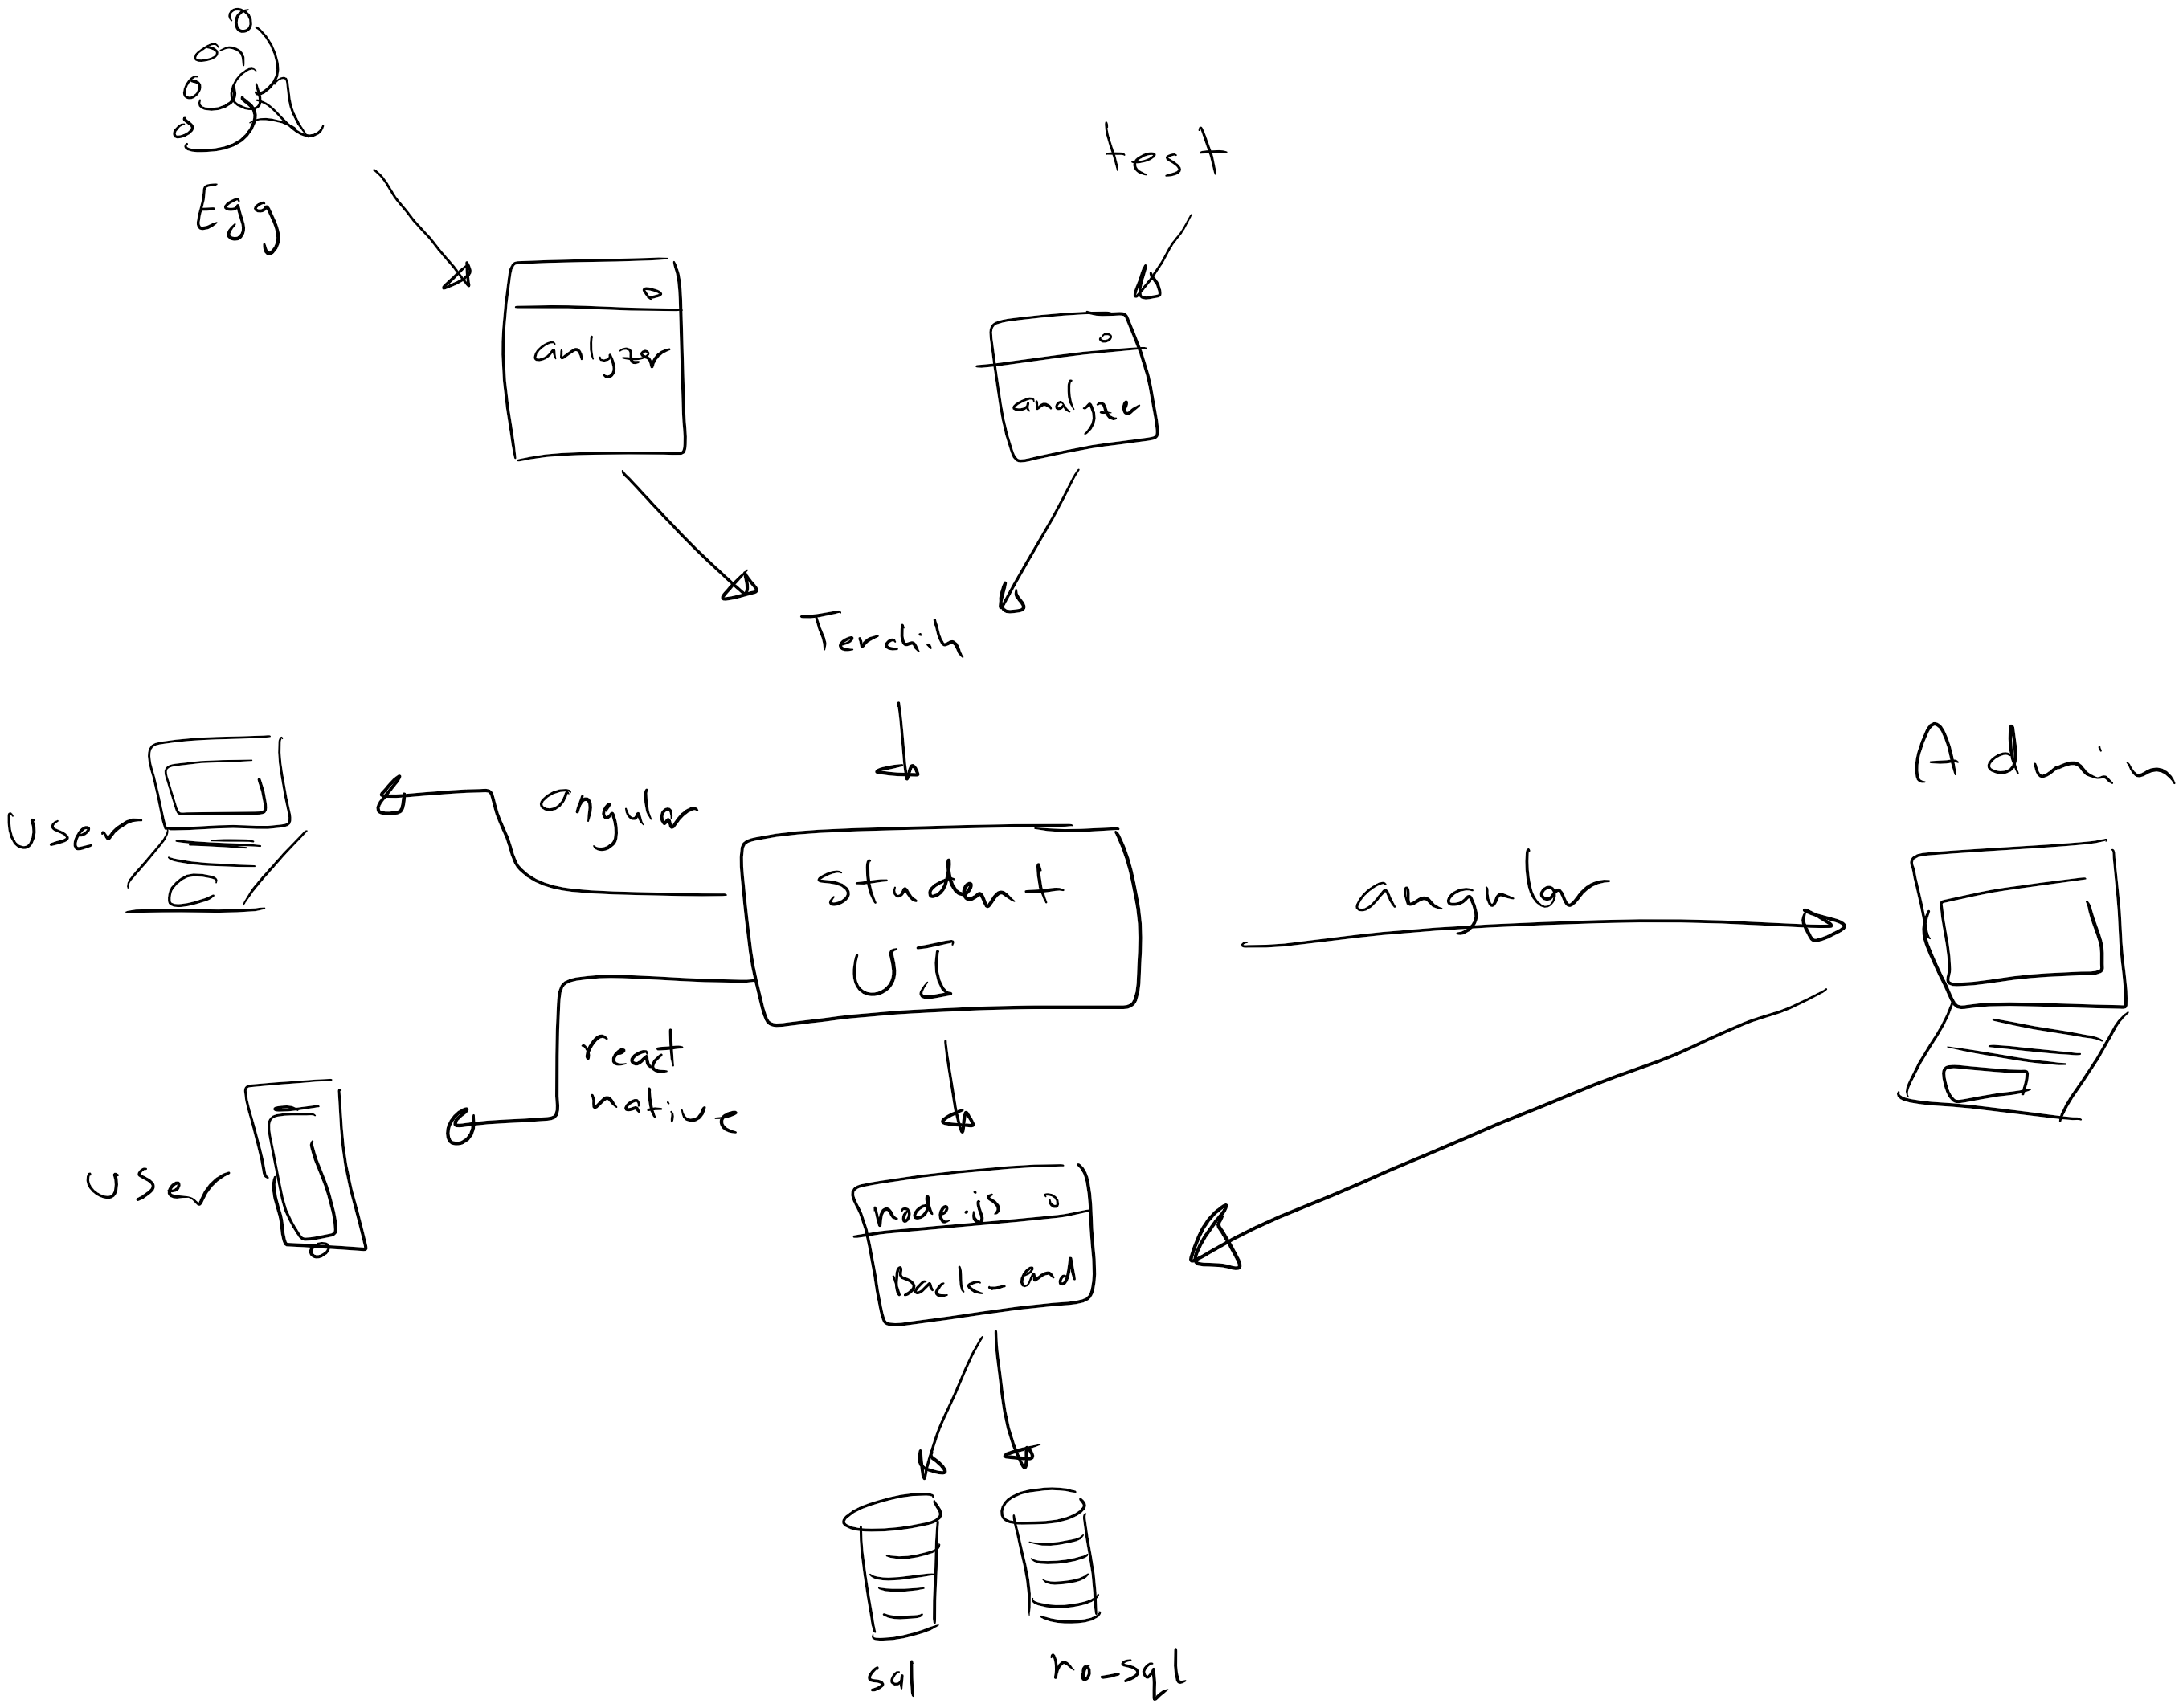 Egg
test
anlyzer
analyzer
Tercih
Admin
User
angular
student
UI
angular
react
native
user
nodejs
Back-end
sql
no-sql